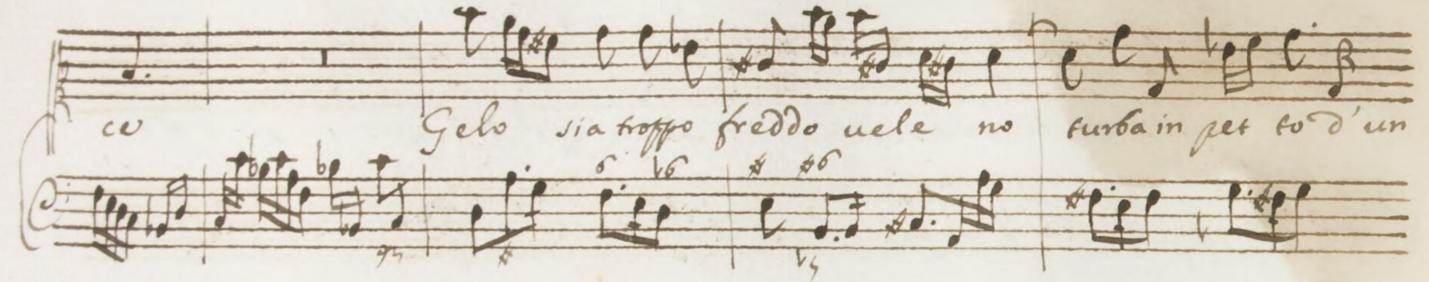 ce Gelo sia troppo freddo uele no turba in pet to d'un
6 b6 # #6